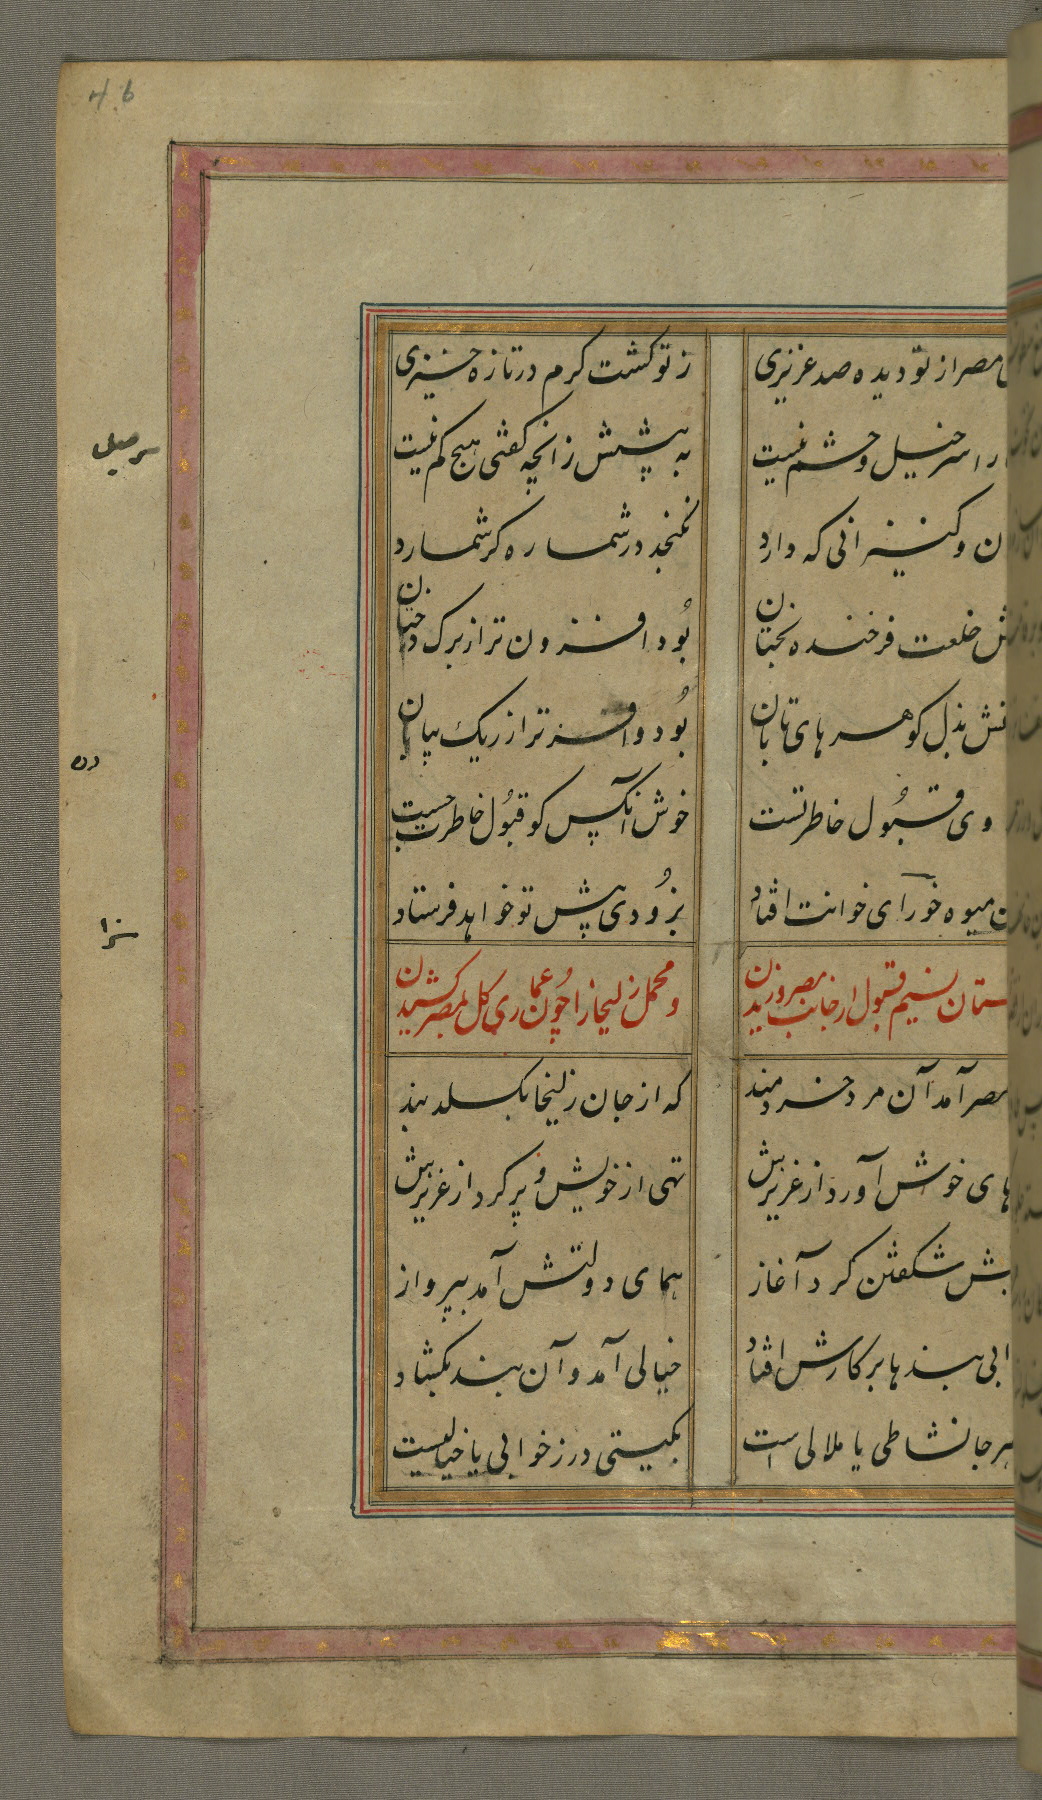 46
مصر از تو دیده صد عزیزی
ز تو کشت کرم در تازه خیزی
را سر خیل و حشم نیست
به پیشش زانچه کفتی هیچ کم نیست
ن و کنیزانی که دارد
نکنجد در شماره کر شمارد
ش خلعت فرخنده بختان
بُود افزون تر از برک درختان
نش بذل کوهرهای تابان
بُود وافزتر از ریک بیابان
وی قبُول خاطر تست
خوش آنکس کو قبُول خاطر
میوه خورای خوانت افتاد
بزُودی پیش تو خواهد فرستاد
ستان نسیم قبول از جانب مصر وزیدن
و محمل زلیخا را چُون عماری کل بمصر کشیدن
مصر آمد آن مرد خردمند
که از جان زلیخا بکسلد بند
های خوش آورد از عزیزیش
تهی از خویش و پر کرد از عزیزیش
بش شکفتن کرد آغاز
همای دولتش آمد بپرواز
ابی بندها بر کارش افتاد
خیالی آمد و آن بند بکشاد
هر جا نشاطی یا ملالی است
بکیتی در ز خوابی یا خیالیست